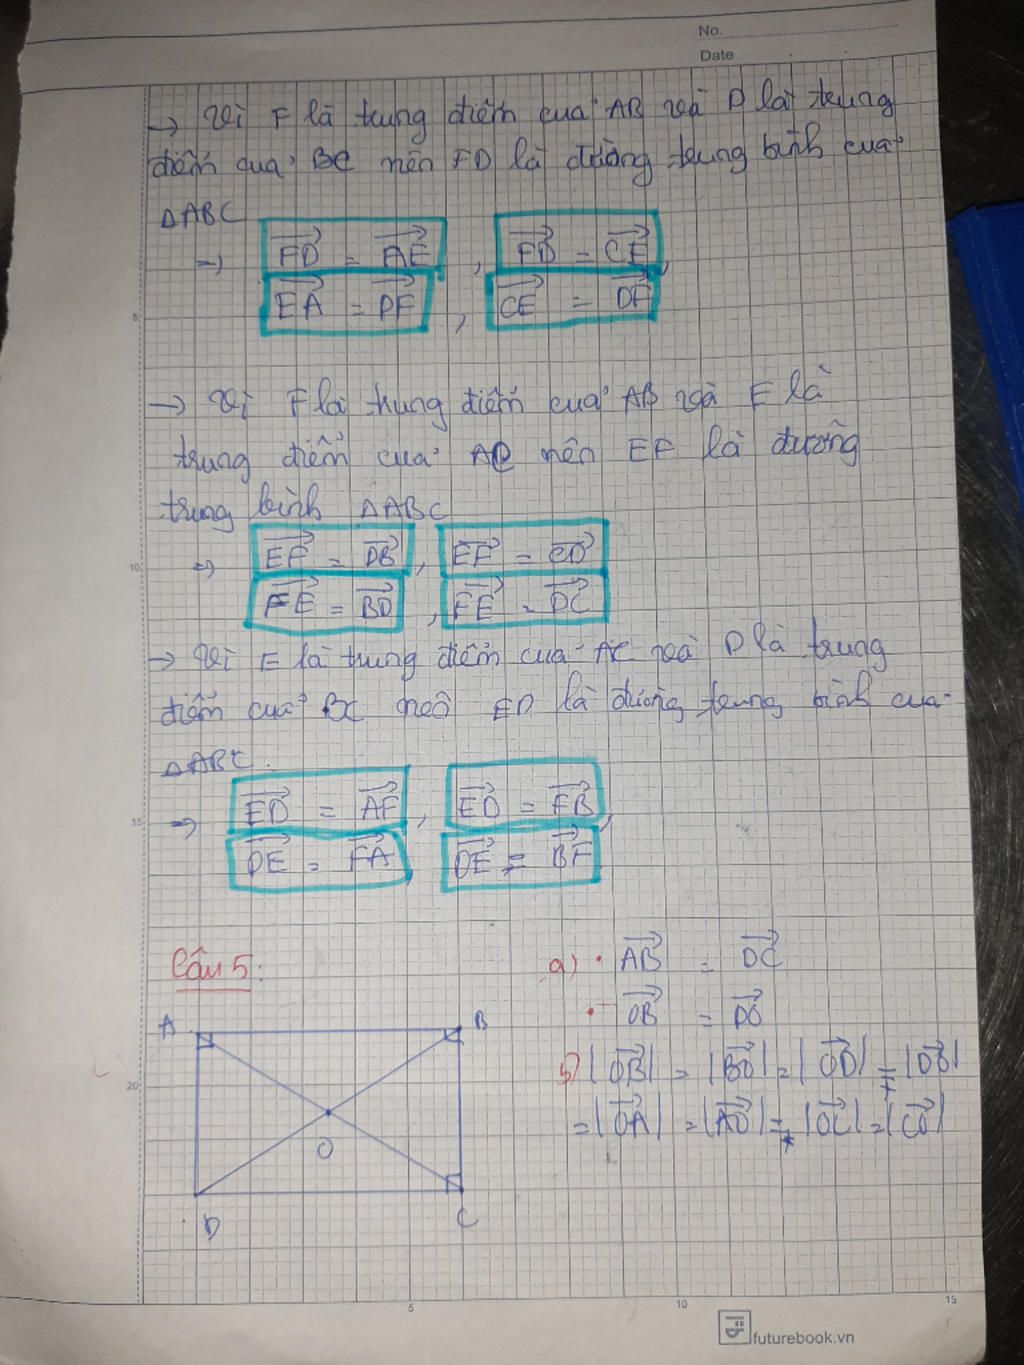 No.
Date
→ Vì F là trung điểm của AB và D là trung
điểm của BC nên FD là đường trung bình của
△ABC
⇒ $\overrightarrow{FD} = \overrightarrow{AE}$ , $\overrightarrow{FD} = \overrightarrow{CE}$,
$\overrightarrow{EA} = \overrightarrow{DF}$ , $\overrightarrow{CE} = \overrightarrow{DF}$
5
→ Vì F là trung điểm của AB và E là
trung điểm của AC nên EF là đường
trung bình △ABC
⇒ $\overrightarrow{EF} = \overrightarrow{DB}$ , $\overrightarrow{EF} = \overrightarrow{CD}$
10
$\overrightarrow{FE} = \overrightarrow{BD}$ , $\overrightarrow{FE} = \overrightarrow{DC}$
→ Vì E là trung điểm của AC và D là trung
điểm của BC nên ED là đường trung bình của
△ABC.
⇒ $\overrightarrow{ED} = \overrightarrow{AF}$ , $\overrightarrow{ED} = \overrightarrow{FB}$,
15
$\overrightarrow{DE} = \overrightarrow{FA}$, $\overrightarrow{DE} = \overrightarrow{BF}$
Câu 5:
a) • $\overrightarrow{AB} = \overrightarrow{DC}$
• $\overrightarrow{OB} = \overrightarrow{DO}$
b) $|\overrightarrow{OB}| = |\overrightarrow{BO}| = |\overrightarrow{OD}| = |\overrightarrow{DO}|$
$= |\overrightarrow{OA}| = |\overrightarrow{AO}| = |\overrightarrow{OC}| = |\overrightarrow{CO}|$
A
B
20
O
D
C
5
10
15
futurebook.vn